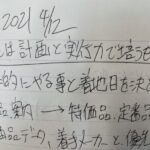 2021 4/12
は計画と実行力で培う
的にやる事と着地日を決
品案内 → 特価品、定番品
品データ、着手メーカーと、優